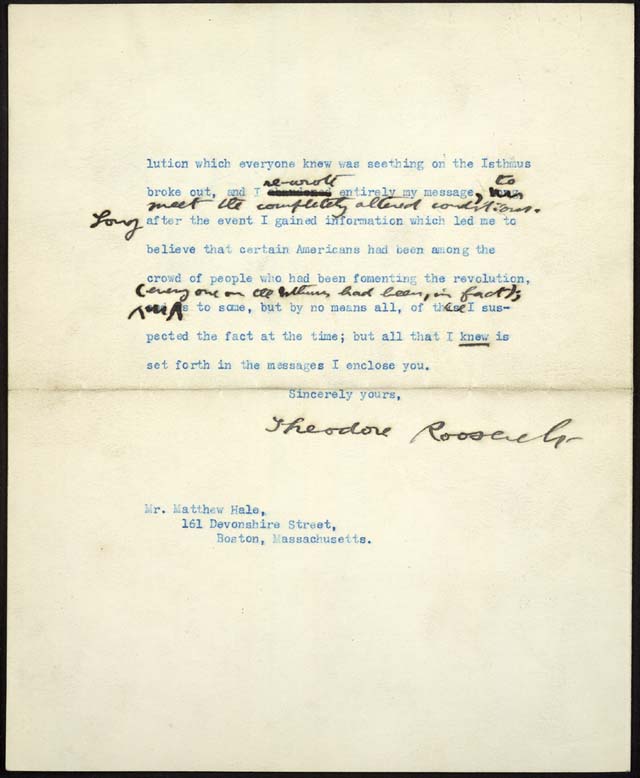 lution which everyone knew was seething on the Isthmus
re-wrote to
broke out, and I abandoned entirely my message,
meet the completely altered conditions.
Long after the event I gained information which led me to
believe that certain Americans had been among the
crowd of people who had been fomenting the revolution,
(every one on the Isthmus had been, in fact);
as to some, but by no means all, of these I sus-
pected the fact at the time; but all that I knew is
set forth in the messages I enclose you.
Sincerely yours,
Theodore Roosevelt
Mr. Matthew Hale,
161 Devonshire Street,
Boston, Massachusetts.